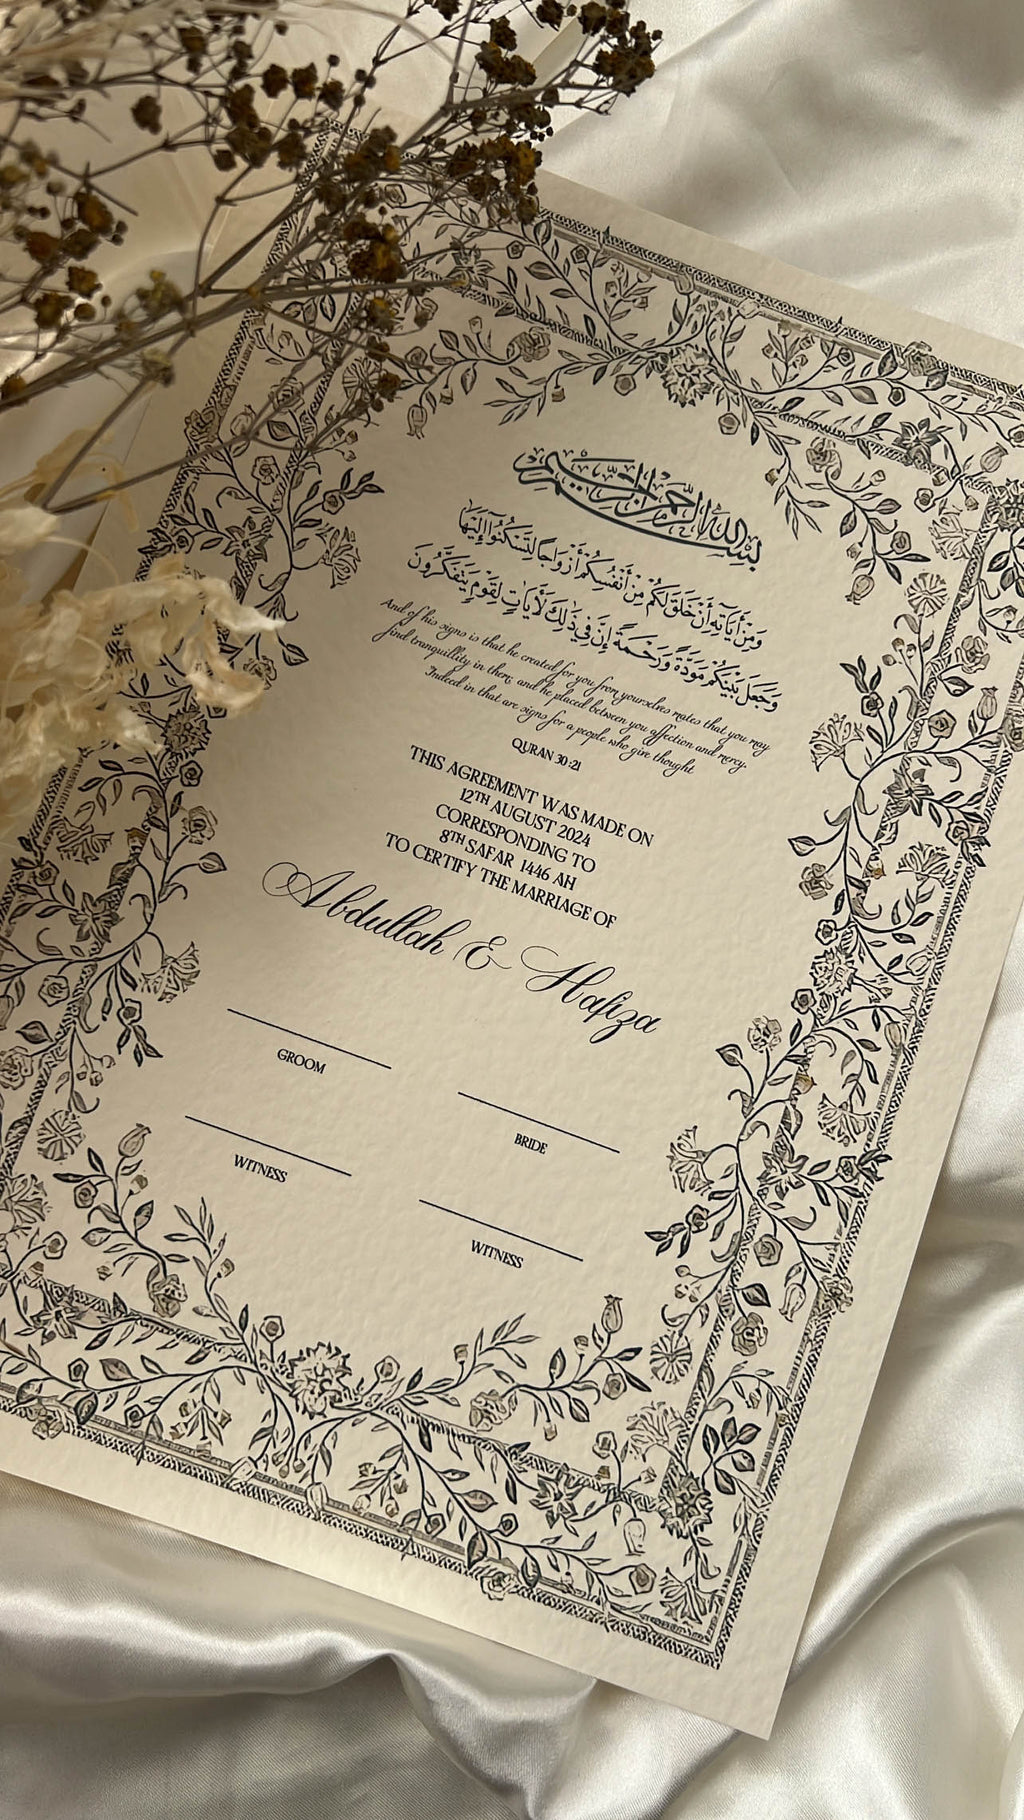 بسم الله الرحمن الرحيم
وَمِنْ أٰيَاتِهِ أَنْ خَلَقَ لَكُم مِنْ أَنْفُسِكُمْ أَزْوَاجًا لِتَسْكُنُوا إِلَيْهَا
وَجَعَلَ بَيْنَكُمْ مَوَدَّةً وَرَحْمَةً إِنَّ فِي ذٰلِكَ لَأٰيَاتٍ لِقَوْمٍ يَتَفَكَّرُونَ
And of his signs is that he created for you from yourselves mates that you may
find tranquillity in them; and he placed between you affection and mercy.
Indeed in that are signs for a people who give thought
QURAN 30:21
THIS AGREEMENT WAS MADE ON
12TH AUGUST 2024
CORRESPONDING TO
8TH SAFAR 1446 AH
TO CERTIFY THE MARRIAGE OF
Abdullah & Hafiza
GROOM
BRIDE
WITNESS
WITNESS